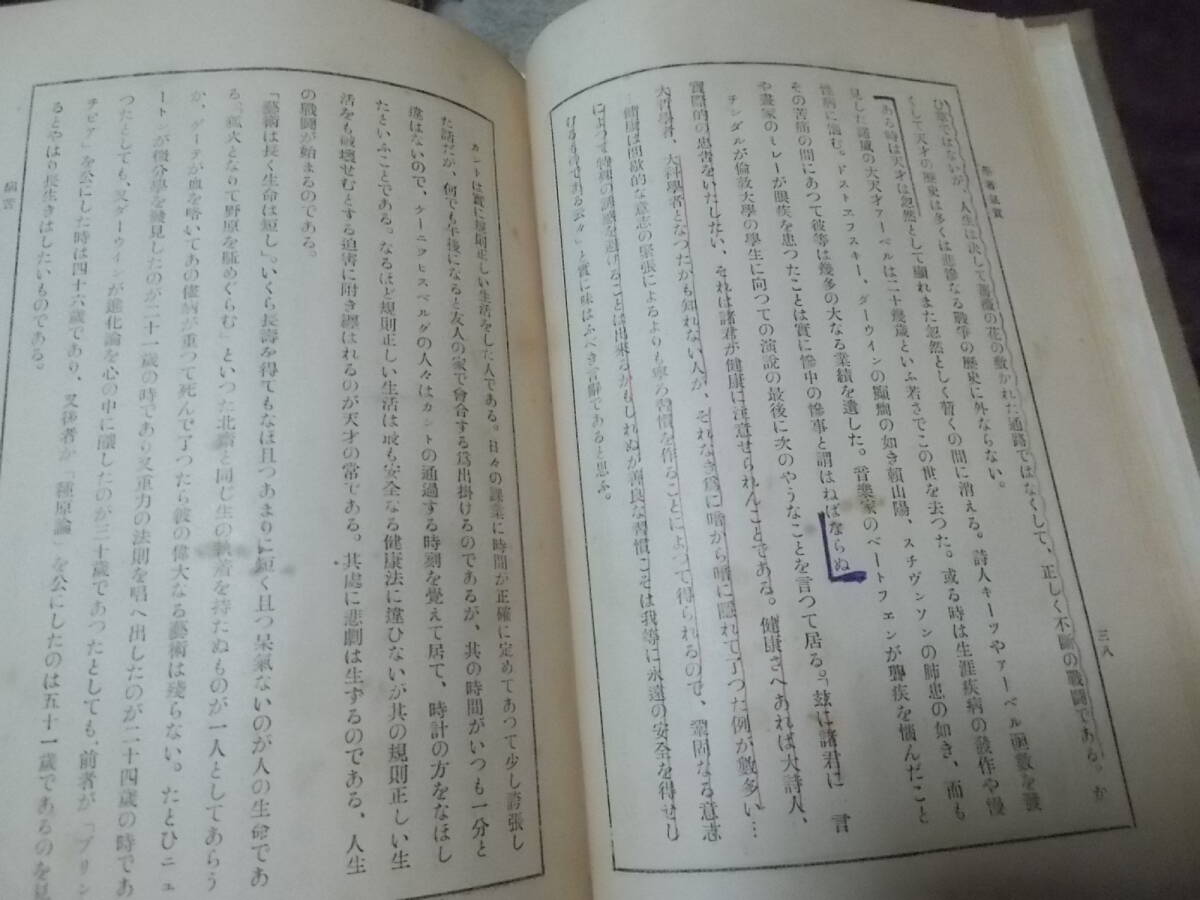 三八
ひ業ではないが、人生は決して薔薇の花の敷かれた通路ではなくして、正しく不斷の戰鬪である。か
くして天才の歷史は多くは悲慘なる戰爭の歷史に外ならない。
ある時は天才は忽然として顯れまた忽然としく暫くの間に消える。詩人キーツやアーベル凾數を發
見した諾威の大天才アーベルは二十幾歲といふ若さでこの世を去つた。或る時は生涯疾病の發作や漫
性病に惱む。ドストエフスキー、ダーウインの癲癇の如き賴山陽、スチヴンソンの肺患の如き、而も
その苦痛の間にあつて彼等は幾多の大なる業績を遺した。音樂家のベートフエンが聾疾を惱んだこと
や畫家のミレーが眼疾を患つたことは實に慘中の慘事と謂はねばならぬ
チンダルが倫敦大學の學生に向つての演說の最後に次のやうなことを言つて居る。「玆に諸君に一言
實際的の忠吿をいたしたい、それは諸君が健康に注意せられんことである。健康さへあれば大詩人、
大哲學者、大科學者となつたかも知れない人が、それなき爲に暗から暗に隱れて了つた例が數多い…
健康は間歇的な意志の緊張によるよりも寧ろ習慣を作ることによつて得られるので、鞏固なる意志
によつて特種の誘惑を避けることは出來るかもしれぬが善良な習慣こそは我等に永遠の安全を得せし
むるものである云々」と實に味はふべき言辭であると思ふ。
カントは實に規則正しい生活をした人である。日々の課業に時間が正確に定めてあつて少し誇張し
た話だが、何でも午後になると友人の家で會合する爲出掛けるのであるが、其の時間がいつも一分と
違はないので、ケーニヒスベルグの人々はカントの通過する時刻を覺えて居て、時計の方をなほし
たといふことである。なるほど規則正しい生活は最も安全なる健康法に違ひないが其の規則正しい生
活をも破壞せむとする迫害に附き纒はれるのが天才の常である。其處に悲劇は生ずるのである、人生
の戰鬪が始まるのである。
「藝術は長く生命は短し」。いくら長壽を得てもなほ且つあまりに短く且つ呆氣ないのが人の生命であ
る。「飛火となりて野原を駈めぐらむ」といつた北齋と同じ生の執着を持たぬものが一人としてあらう
か、ゲーテが血を喀いてあの儘病が重つて死んで了つたら彼の偉大なる藝術は殘らない。たとひニュ
ートンが微分學を發見したのが二十一歲の時であり又重力の法則を唱へ出したのが二十四歲の時であ
つたとしても、又ダーウインが進化論を心の中に釀したのが三十歲であつたとしても、前者が「プリン
チピア」を公にした時は四十六歲であり、又後者が「種原論」を公にしたのは五十一歲であるのを見
るとやはり長生きはしたいものである。